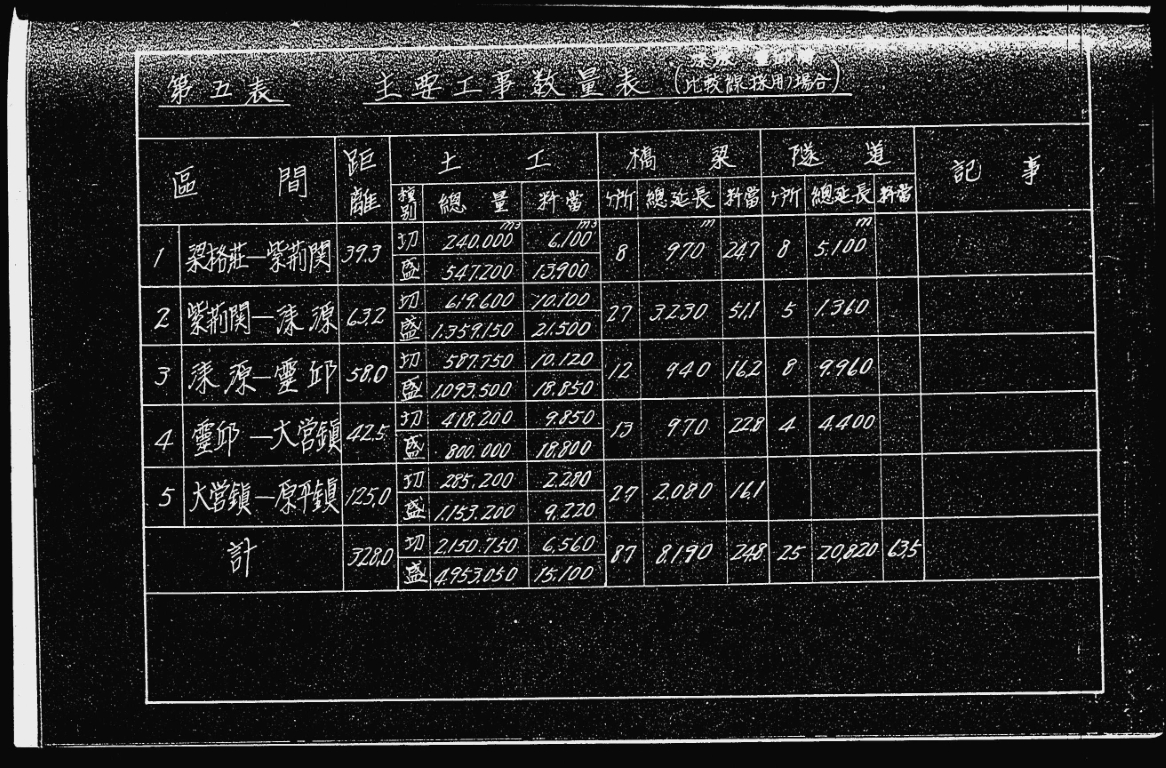 第五表 主要工事数量表 (淶源 靈邱間 比較線採用ノ場合)
區間 距離 土工 橋梁 隧道 記事
種別 總量 粁當 ケ所 總延長 粁當 ケ所 總延長 粁當
1 梁格莊—紫荊関 39.3 切 240.000m3 6,100m3 8 970m 24.7 8 5.100m
盛 547.200 13,900
2 紫荊関—淶源 63.2 切 619.600 10.100 27 3.230 51.1 5 1.360
盛 1.359.150 21.500
3 淶源—靈邱 58.0 切 587.750 10.120 12 940 16.2 8 9.960
盛 1.093.500 18.850
4 靈邱—大営鎮 42.5 切 418.200 9.850 13 970 22.8 4 4.400
盛 800.000 18.800
5 大営鎮—原平鎮 125.0 切 285.200 2.280 27 2.080 16.1
盛 1.153.200 9.220
計 328.0 切 2.150.750 6,560 87 8.190 24.8 25 20,820 63.5
盛 4.953.050 15.100